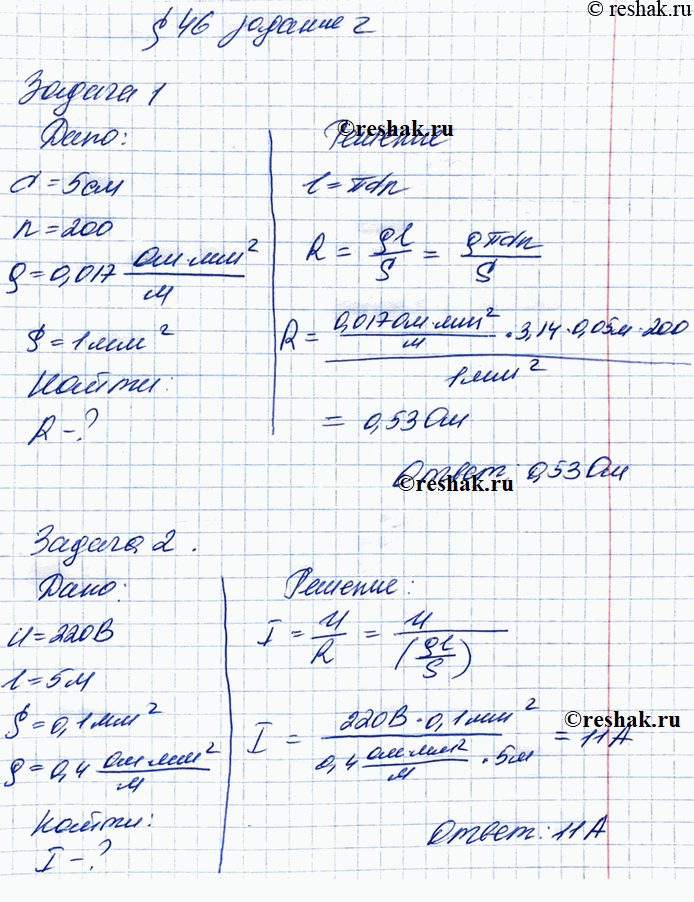 © reshak.ru
§ 46 задание 2
Задача 1
Дано:
d = 5см
n = 200
ρ = 0,017 Ом·мм²/м
S = 1мм²
Найти:
R - ?
©reshak.ru
Решение
l = πdn
R = ρl/S = ρπdn/S
R = 0,017 Ом·мм²/м · 3,14 · 0,05м · 200 / 1мм²
= 0,53 Ом
Ответ: 0,53 Ом
©reshak.ru
Задача 2.
Дано:
U = 220В
l = 5м
S = 0,1мм²
ρ = 0,4 Ом·мм²/м
Найти:
I - ?
Решение:
I = U/R = U/(ρl/S)
©reshak.ru
I = 220В · 0,1мм² / 0,4 Ом·мм²/м · 5м = 11А
Ответ: 11А